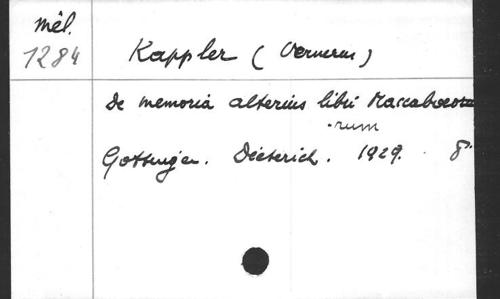 Mél.
1284
Kappler (Vernerus)
De memoria alterius libri Maccabaeo
-rum
Gottingen. Dieterich. 1929. 8°.